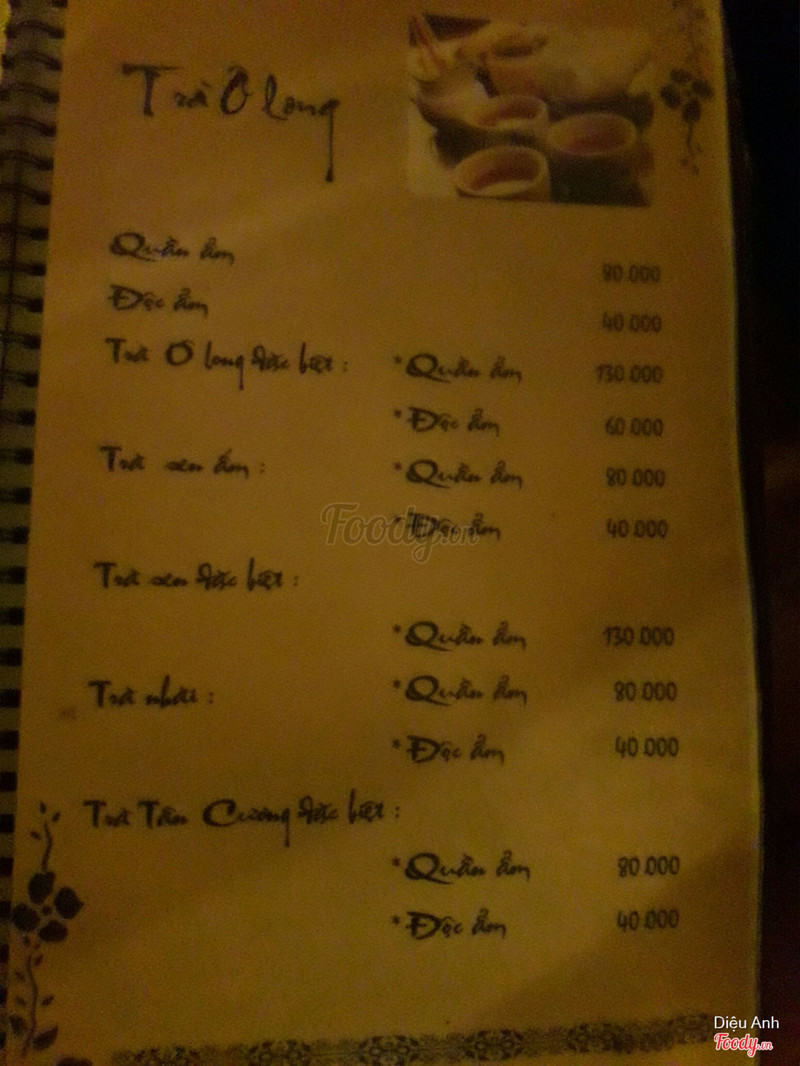 Trà Ô long
Quần ẩm 80.000
Độc ẩm 40.000
Trà Ô long đặc biệt : * Quần ẩm 130.000
* Độc ẩm 60.000
Trà sen ấm : * Quần ẩm 80.000
* Độc ẩm 40.000
Foody.vn
Trà sen đặc biệt :
* Quần ẩm 130.000
Trà nhài : * Quần ẩm 80.000
* Độc ẩm 40.000
Trà Tân Cương đặc biệt :
* Quần ẩm 80.000
* Độc ẩm 40.000
Diệu Anh
Foody.vn